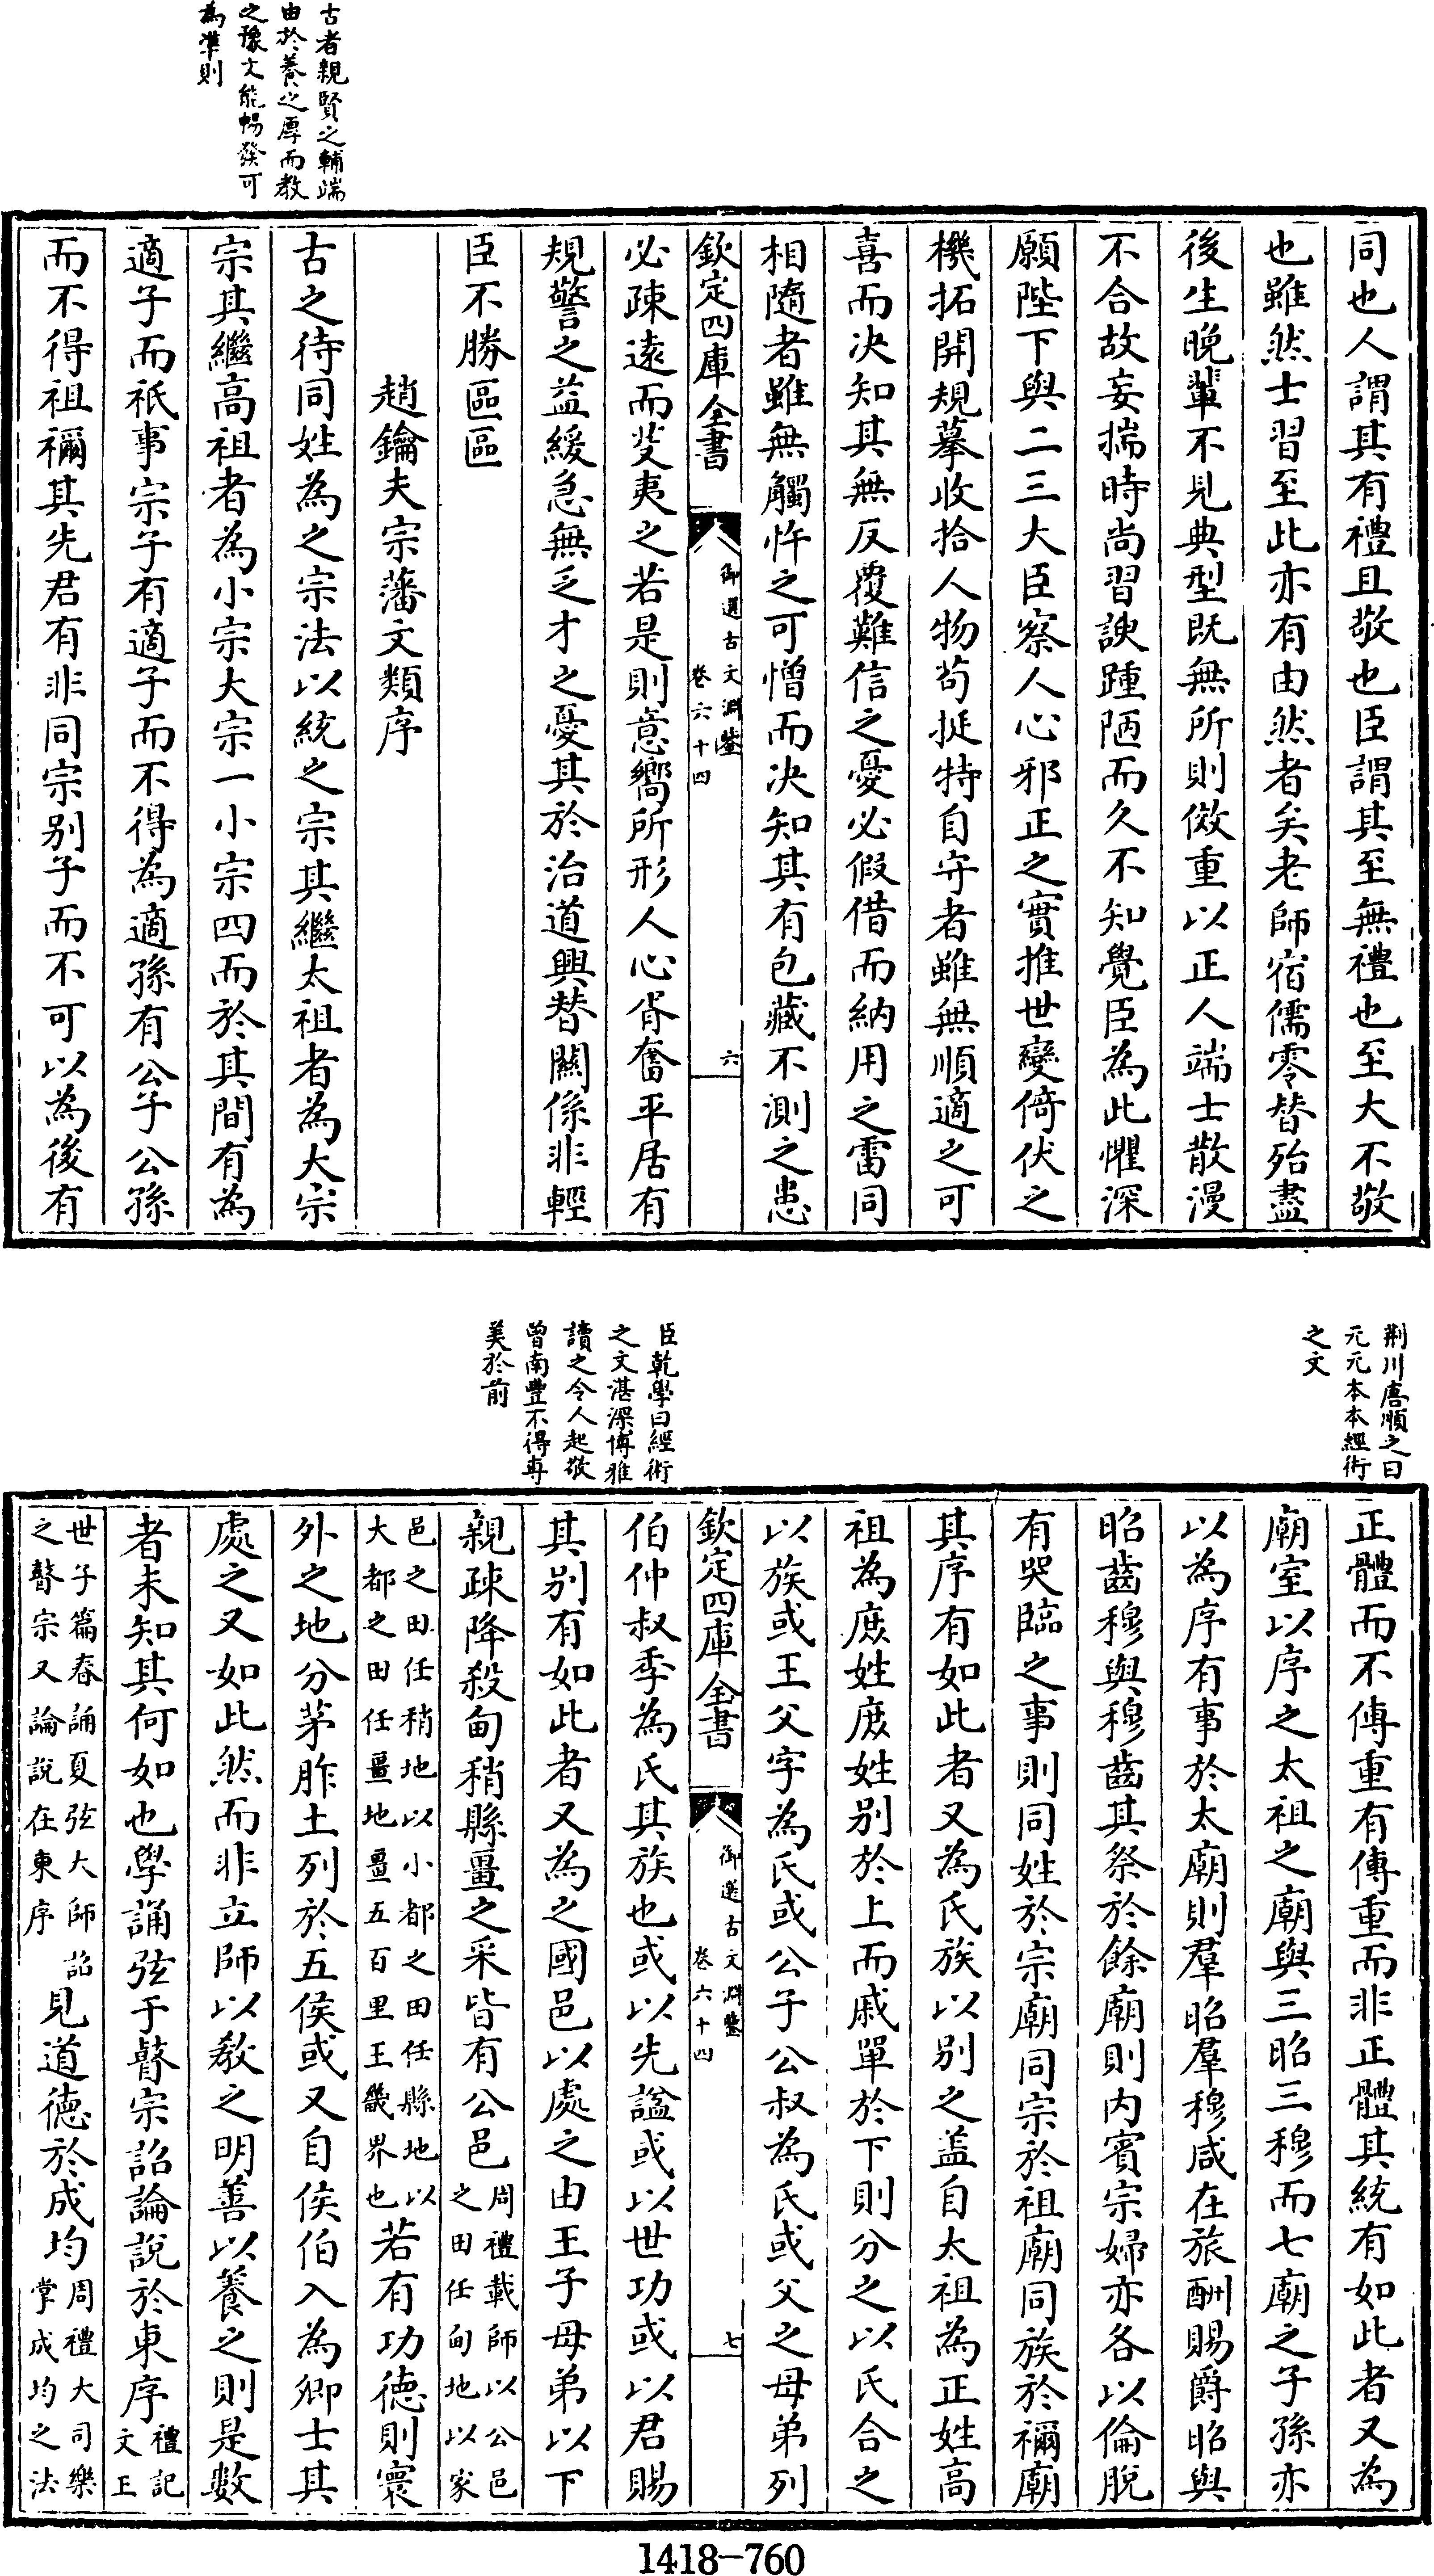 古者親賢之輔端
由於養之厚而教
之豫文能暢發可
為準則
同也人謂其有禮且敬也臣謂其至無禮也至大不敬
也雖然士習至此亦有由然者矣老師宿儒零替殆盡
後生晚輩不見典型既無所則傚重以正人端士散漫
不合故妄揣時尚習諛踵陋而久不知覺臣為此懼深
願陛下與二三大臣察人心邪正之實推世變倚伏之
機拓開規摹收拾人物苟挺特自守者雖無順適之可
喜而决知其無反覆難信之憂必假借而納用之雷同
相隨者雖無觸忤之可憎而决知其有包藏不測之患
欽定四庫全書
御選古文淵鑒
卷六十四
六
必疎遠而芟夷之若是則意嚮所形人心胥奮平居有
規警之益緩急無乏才之憂其於治道興替關係非輕
臣不勝區區
趙鑰夫宗藩文類序
古之待同姓為之宗法以統之宗其繼太祖者為大宗
宗其繼高祖者為小宗大宗一小宗四而於其間有為
適子而祇事宗子有適子而不得為適孫有公子公孫
而不得祖禰其先君有非同宗别子而不可以為後有
荆川唐順之曰
元元本本經術
之文
臣乾學曰經術
之文湛深博雅
讀之令人起敬
曾南豐不得專
美於前
正體而不傳重有傳重而非正體其統有如此者又為
廟室以序之太祖之廟與三昭三穆而七廟之子孫亦
以為序有事於太廟則羣昭羣穆咸在旅酬賜爵昭與
昭齒穆與穆齒其祭於餘廟則内賓宗婦亦各以倫脫
有哭臨之事則同姓於宗廟同宗於祖廟同族於禰廟
其序有如此者又為氏族以别之蓋自太祖為正姓高
祖為庶姓庶姓别於上而戚單於下則分之以氏合之
以族或王父字為氏或公子公叔為氏或父之母弟列
欽定四庫全書
御選古文淵鑒
卷六十四
七
伯仲叔季為氏其族也或以先謚或以世功或以君賜
其别有如此者又為之國邑以處之由王子母弟以下
親疎降殺甸稍縣畺之采皆有公邑周禮載師以公邑之田任甸地以家
邑之田任稍地以小都之田任縣地以大都之田任畺地畺五百里王畿界也若有功德則寰
外之地分茅胙土列於五侯或又自侯伯入為卿士其
處之又如此然而非立師以教之明善以養之則是數
者未知其何如也學誦弦于瞽宗詔論說於東序禮記文王
世子篇春誦夏弦大師詔之瞽宗又論說在東序見道德於成均周禮大司樂掌成均之法
1418-760